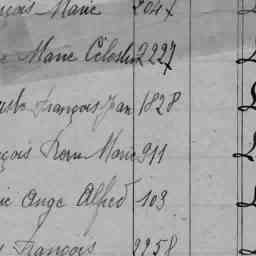 çois Marie 2047
Marie Célestin 2227
François Jean 1828
çois Marie 911
Ange Alfred 103
François 2258